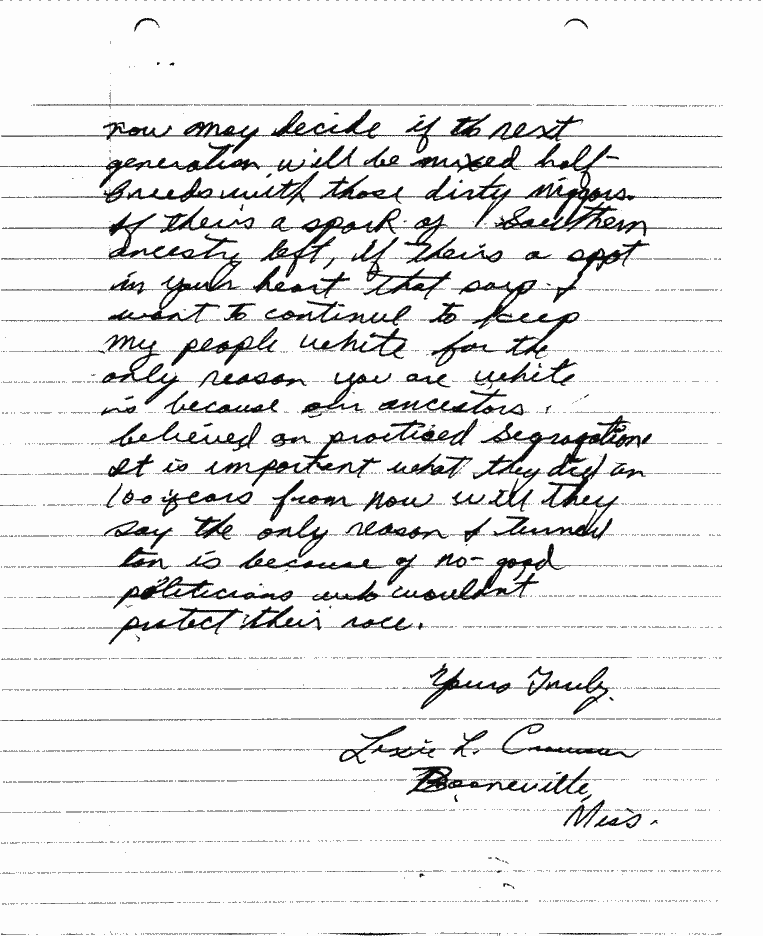 now may decide if th next
generation will be mixed half-
breeds with those dirty niggors.
If theirs a spark of Southern
ancestry left, if theirs a spot
in your heart that says I
want to continue to keep
my people white for the
only reason you are white
is because our ancestors
believed an practiced Segragation
It is important what they did an
100 years from now will they
say the only reason I turned
tan is because of no-good
politicians who wouldnt
protect their race.
Yours Truly,
L.
Booneville,
Miss.